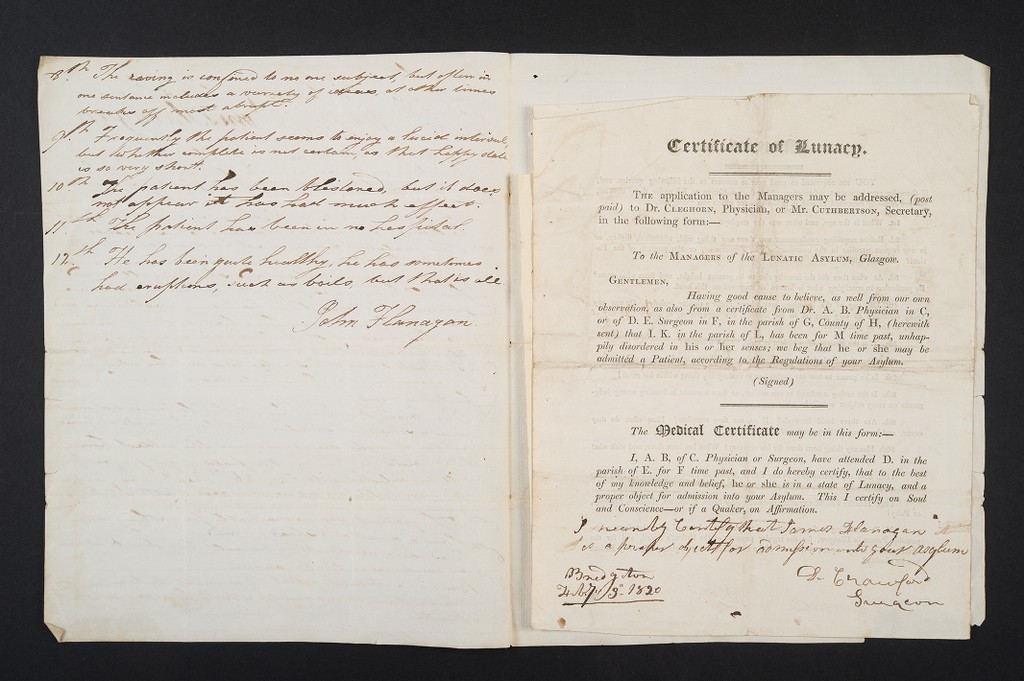 8th The raving is confined to no one subject, but often in
one sentence includes a variety of ideas at other times
breaks off most abrupt.
9th Frequently the patient seems to enjoy a lucid interval,
but whether complete is not certain, as that happy state
is so very short.
10th The patient has been blistered, but it does
not appear it has had much effect.
11th The patient has been in no hospital.
12th He has been quite healthy, he has sometimes
had eruptions, such as boils, but that is all
John Flanagan
Certificate of Lunacy.
THE application to the Managers may be addressed, (post
paid) to Dr. CLEGHORN, Physician, or Mr. CUTHBERTSON, Secretary,
in the following form:—
To the MANAGERS of the LUNATIC ASYLUM, Glasgow.
GENTLEMEN,
Having good cause to believe, as well from our own
observation, as also from a certificate from Dr. A. B. Physician in C,
or of D. E. Surgeon in F, in the parish of G, County of H, (herewith
sent) that I. K. in the parish of L, has been for M time past, unhap-
pily disordered in his or her senses; we beg that he or she may be
admitted a Patient, according to the Regulations of your Asylum.
(Signed)
The Medical Certificate may be in this form:—
I, A. B, of C. Physician or Surgeon, have attended D. in the
parish of E. for F time past, and I do hereby certify, that to the best
of my knowledge and belief, he or she is in a state of Lunacy, and a
proper object for admission into your Asylum. This I certify on Soul
and Conscience—or if a Quaker, on Affirmation.
I Certify that James Flanagan
is a proper object for into your asylum
Crawford
Surgeon
3 1820